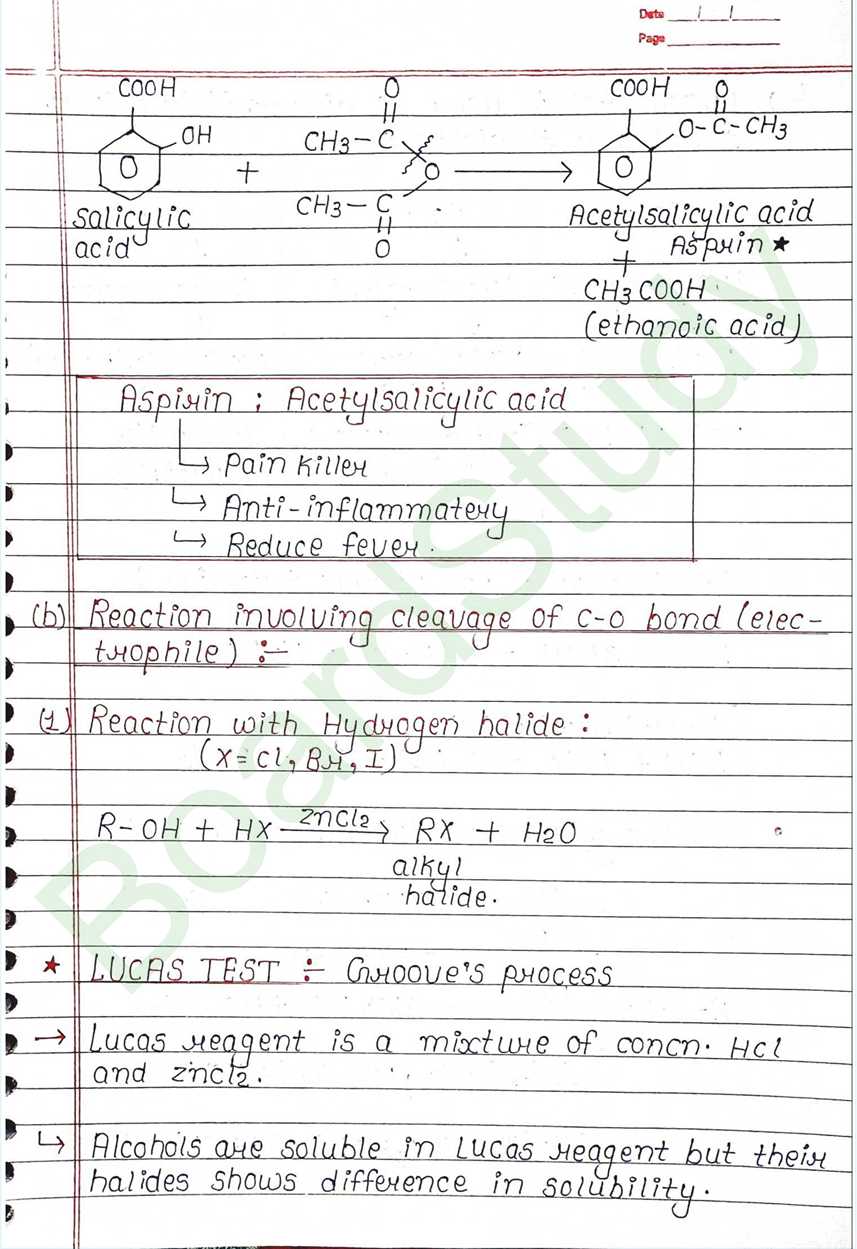 Date / /
Page
COOH
OH
+
Salicylic
acid
O
CH3-C
O
CH3-C
O
COOH
O
O-C-CH3
Acetylsalicylic acid
Asprin ★
+
CH3COOH
(ethanoic acid)
Aspirin : Acetylsalicylic acid
↳ Pain killer
↳ Anti-inflammatery
↳ Reduce fever.
(b) Reaction involving cleavage of C-O bond (elec-
trophile) :-
(1) Reaction with Hydrogen halide :
(X = Cl, Br, I)
R-OH + HX ZnCl2→ RX + H2O
alkyl
halide.
★ LUCAS TEST :- Groove's process
→ Lucas reagent is a mixture of concn. HCl
and zncl2.
↳ Alcohols are soluble in Lucas reagent but their
halides shows difference in solubility.
BoardStudy